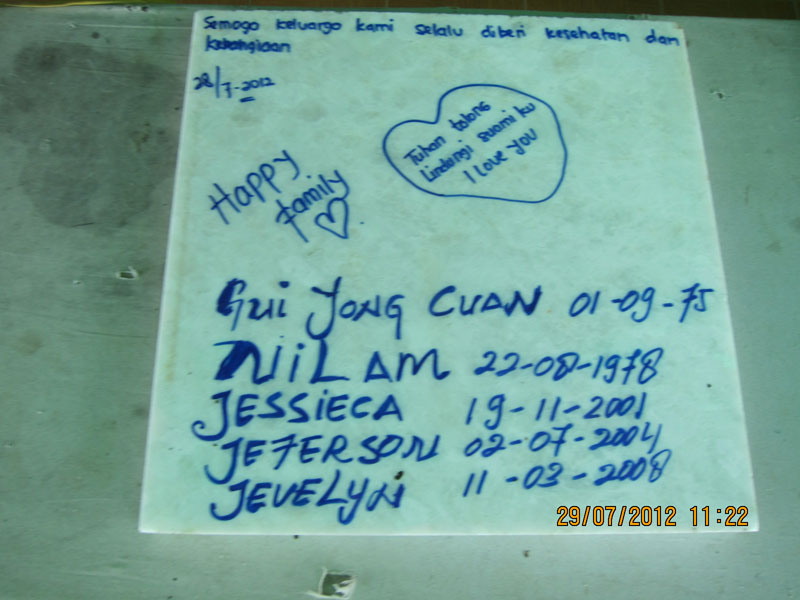 Semoga keluarga kami selalu diberi kesehatan dan
kebahgiaan
28/7-2012
Tuhan tolong
Lindungi suami ku
I Love You
Happy
family
GUI YONG CUAN 01-09-75
NiLAM 22-08-1978
JESSiECA 19-11-2001
JEFERSON 02-07-2004
JEVELyN 11-03-2008
29/07/2012 11:22